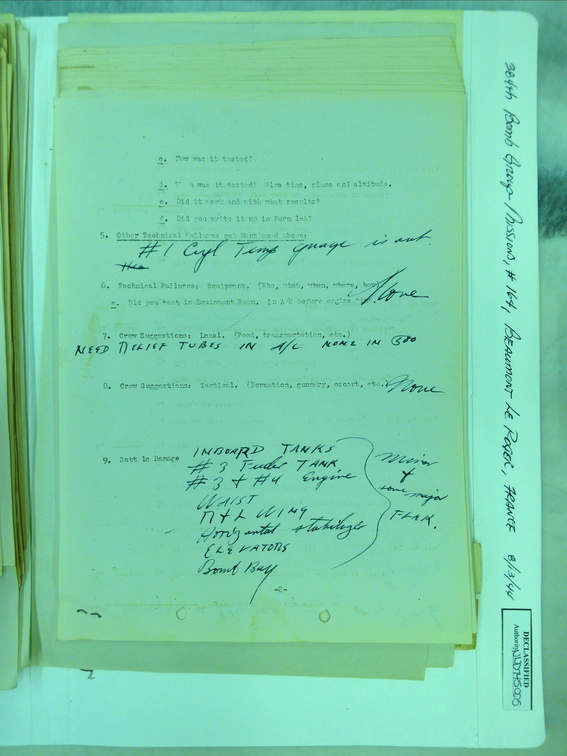 c. How was it tested?
d. When was it tested? Give time, place and altitude.
e. Did it work and with what results?
f. Did you write it up in Form 1-A?
5. Other Technical Failures not Mentioned above:
#1 Cyl Temp guage is out
6. Technical Failures: Equipment. (Who, what, when, where, how)
None
a. Did you test in Equipment Room. In A/C before engine
7. Crew Suggestions: Local. (Food, transportation, etc.)
NEED RELIEF TUBES IN A/C NONE IN
8. Crew Suggestions: Tactical. (Formation, gunnery, escort, etc. None
9. Battle Damage
INBOARD TANKS
#3 Feeder TANK
#3 + #4 Engine
WAIST
R + L WING
Horizontal stabilizer
ELEVATORS
Bomb Bay
Minor
+
some major
FLAK.
-2-
384th Bomb Group / Mission, # 164, BEAUMONT LE ROGER, FRANCE 8/13/44
DECLASSIFIED
Authority NND 745005